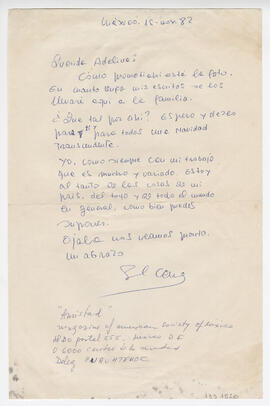 México. 15-nov. 82
Querida Adelina:
Cómo prometí ahí está la foto.
En cuanto tenga mis escritos se los
llevaré aquí a la familia.
¿Que tal por ahí? Espero y deseo
para y para todos una Navidad
transcendente.
Yo, como siempre con mi trabajo
que es mucho y variado. Estoy
al tanto de las cosas de mi
país, del tuyo y de todo el mundo
en general, como bien puedes
suponer.
Ojalá nos veamos pronto.
Un abrazo
"Amistad"
magazine of american society of mexico
portal
06000 centro
Deleg CUAUHTEMOC